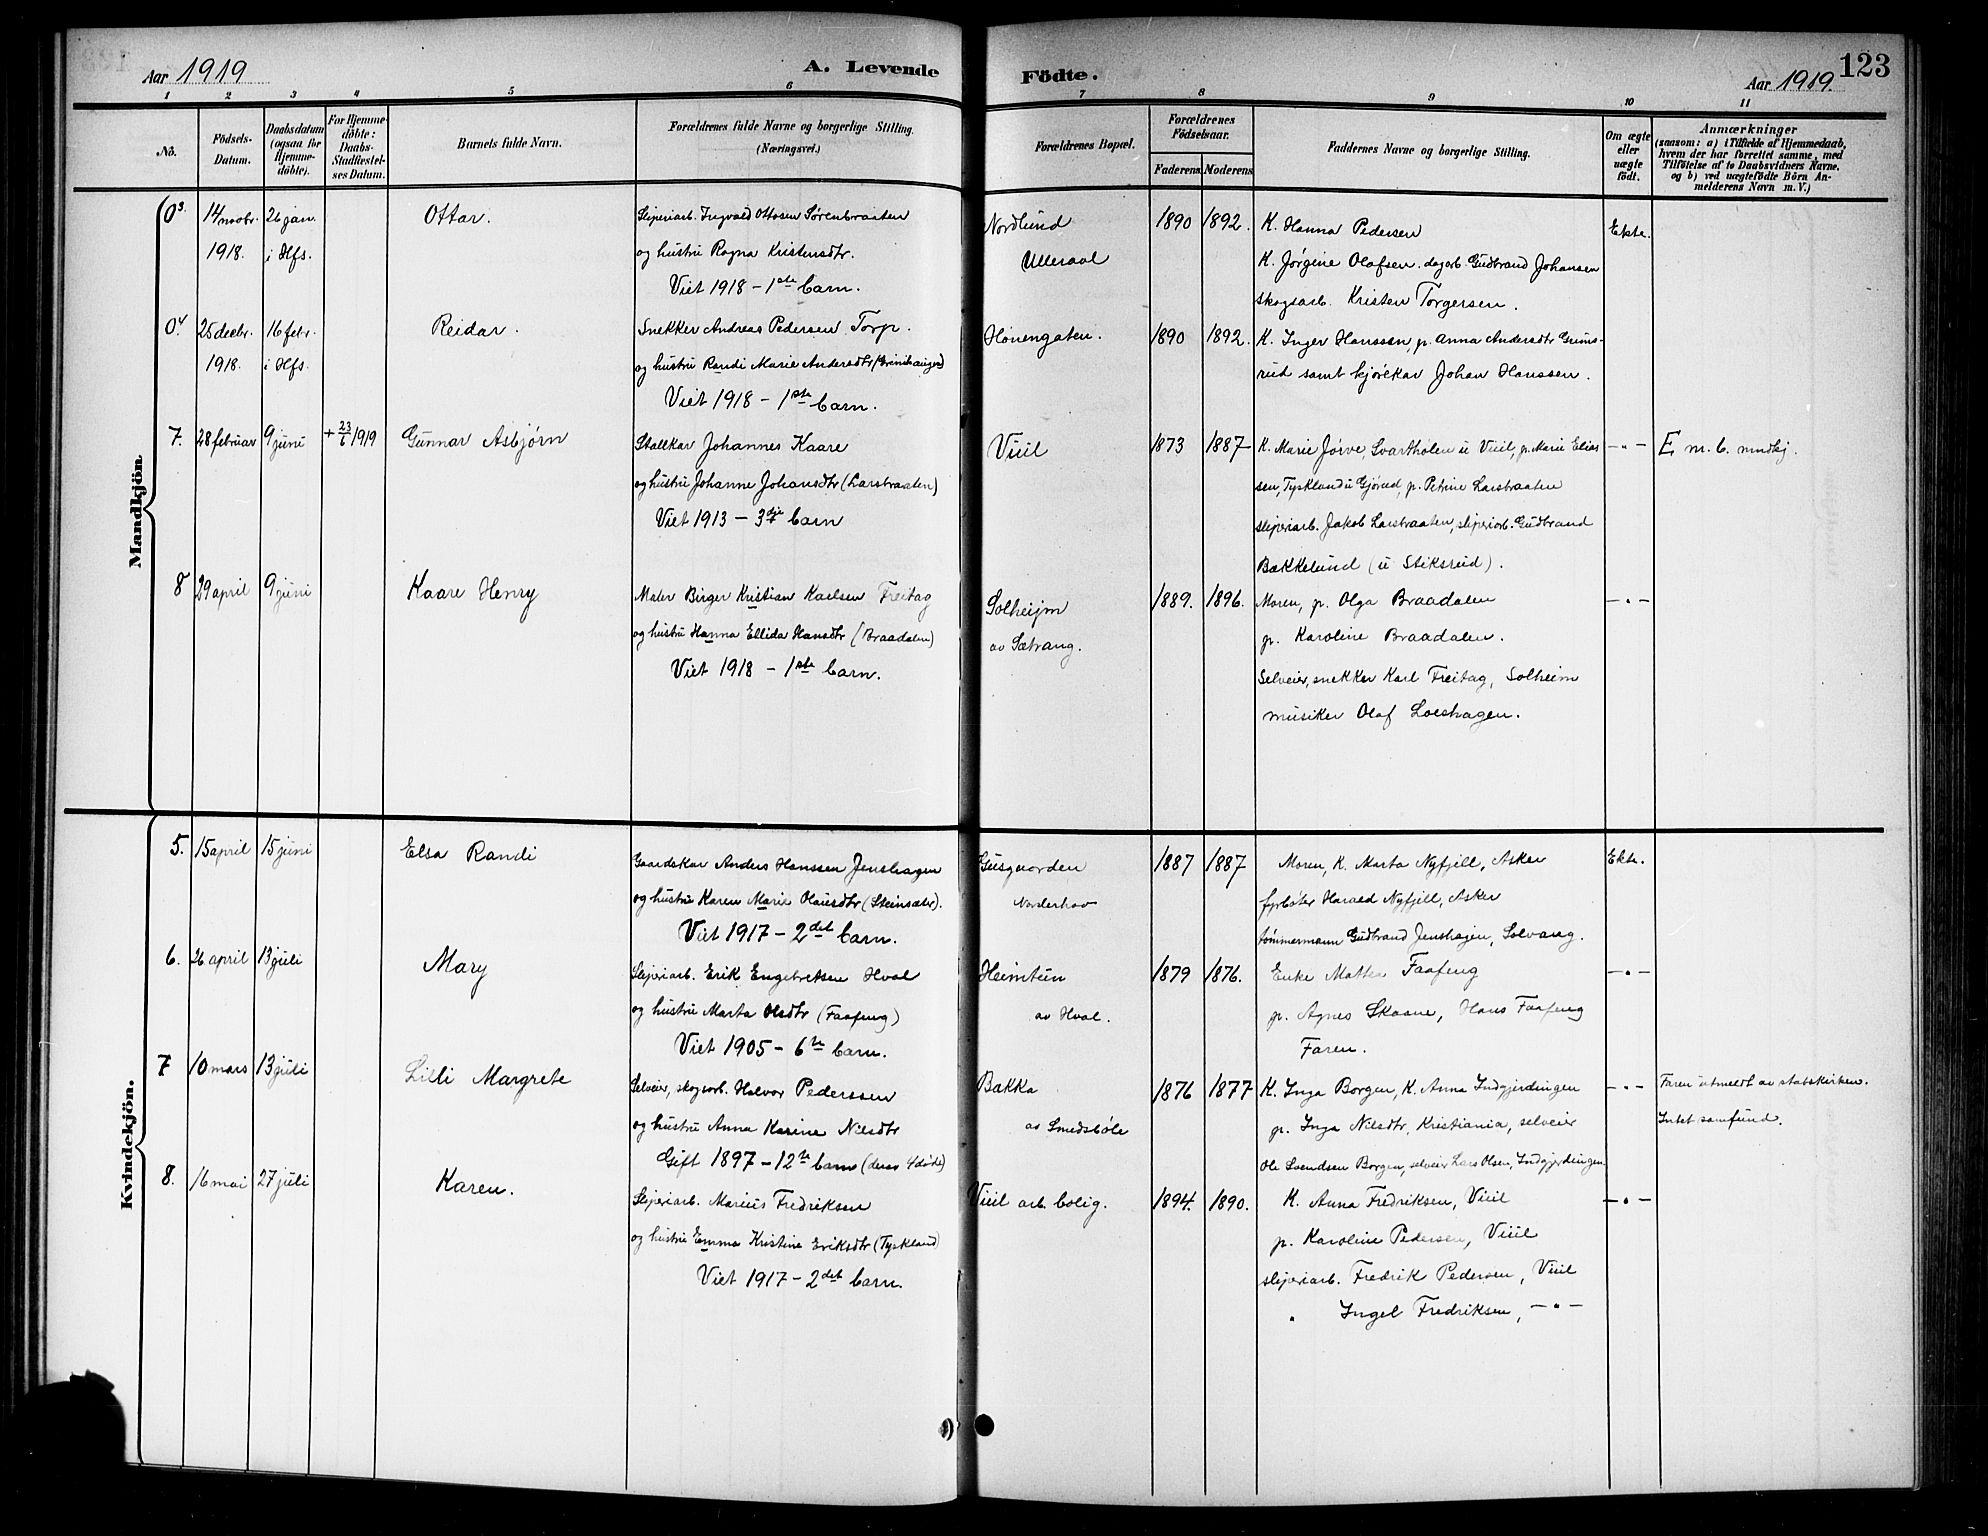 Aar 1919
A. Levende
Födte.
Aar 1919.
123
1 2 3 4 5 6 7 8 9 10 11
No.
Födsels-
Datum.
Daabsdatum
(ogsaa for
Hjemme-
døbte).
For Hjemme-
døbte:
Daabs-
Stadfæstel-
ses Datum.
Barnets fulde Navn.
Forældrenes fulde Navne og borgerlige Stilling.
(Næringsvei.)
Forældrenes Bopæl.
Forældrenes
Födselsaar.
Faderens Moderens
Faddernes Navne og borgerlige Stilling.
Om ægte
eller
uægte
födt.
Anmærkninger
(saasom: a) i Tilfælde af Hjemmedaab,
hvem der har forrettet samme, med
Tilföielse af to Daabsvidners Navne,
og b) ved uægtefödte Börn An-
melderens Navn m. V.)
Mandkjön.
03. 14 novbr. 1918. 26 jan. i Hfs.
Ottar.
Sliperiarb. Ingvald Ottosen Sørenbraaten
og hustru Ragna Kristensdtr.
Viet 1918 - 1ste barn.
Nordlund
Ulleraal
1890 1892.
K. Hanna Pedersen
K. Jørgine Olafsen. dagarb. Gudbrand Johansen
skogsarb. Kristen Torgersen.
Ekte.
04. 25 decbr. 1918. 16 febr. i Hfs.
Reidar.
Snekker Andreas Pedersen Torp.
og hustru Randi Marie Andersdtr
Viet 1918 - 1ste barn.
Hønengaten.
1890 1892.
K. Inger Hanssen, p. Anna Andersdtr Grims-
rud samt kjørekar Johan Hanssen.
7. 28 februar 9 juni + 23/6 1919
Gunnar Asbjørn
Staldkar Johannes Kaare
og hustru Johanne Johansdtr (Larsbraaten)
Viet 1913 - 3dje barn
Viul
1873 1887
K. Marie Jørve, Svartholen u Viul, p. Marie Elias
sen, Tyskland u Gjørud, p. Petrine Larsbraaten
sliperiarb. Jakob Larsbraaten, sliperiarb. Gudbrand
Bækkelund (u Stiksrud).
-"-
E m. 6. mndkj.
8 29 april 9 juni
Kaare Henry
Maler Birger Kristian Karlsen Freitag
og hustru Hanna Ellida Hansdtr (Braadalen)
Viet 1918 - 1ste barn.
Solheim
av Sætrang.
1889. 1896.
Moren, p. Olga Braadalen
p. Karoline Braadalen.
Selveier, snekker Karl Freitag, Solheim
musiker Olaf Loeshagen.
-"-
Kvindekjön.
5. 15 april 15 juni
Elsa Randi
Gaardskar Anders Hanssen Jenshagen
og hustru Karen Marie Olausdtr (Steinsæter).
Viet 1917 - 2det barn.
Gusgaarden
Norderhov
1887 1887
Moren, K. Marta Nyfjell, Asker
fyrbøter Harald Nyfjell, Asker
tømmermann Gudbrand Jenshagen, Solvang.
Ekte.
6. 26 april 13 juli
Mary
Sliperiarb. Erik Engebretsen Hval
og hustru Marta Olsdtr (Faafeng)
Viet 1905 - 6te barn.
Heimtun
av Hval.
1879 1876.
Enke Mathea Faafeng
p. Agnes Skaane, Hans Faafeng
Faren.
-"-
7 10 mars 13 juli
Lilli Margrete
Selveier, skogsarb. Halvor Pederssen
og hustru Anna Karine Nilsdtr
Gift 1897 - 12te barn (derav 4 døde)
Bakka
av Smedsbøle
1876 1877
K. Inga Borgen, K. Anna Indgjerdingen
p. Inga Nilsdtr, Kristiania, selveier
Ole Svendsen Borgen, selveier Lars Olsen, Indgjerdingen
-"-
Faren utmeldt av statskirken.
Intet samfund.
8. 16 mai 27 juli
Karen.
Sliperiarb. Marius Fredriksen
og hustru Emma Kristine Eriksdtr (Tyskland)
Viet 1917 - 2det barn.
Viul arb. bolig.
1894. 1890.
K. Anna Fredriksen, Viul
p. Karoline Pedersen, Viul
sliperiarb. Fredrik Pedersen, Viul
" Ingel Fredriksen, -"-
-"-